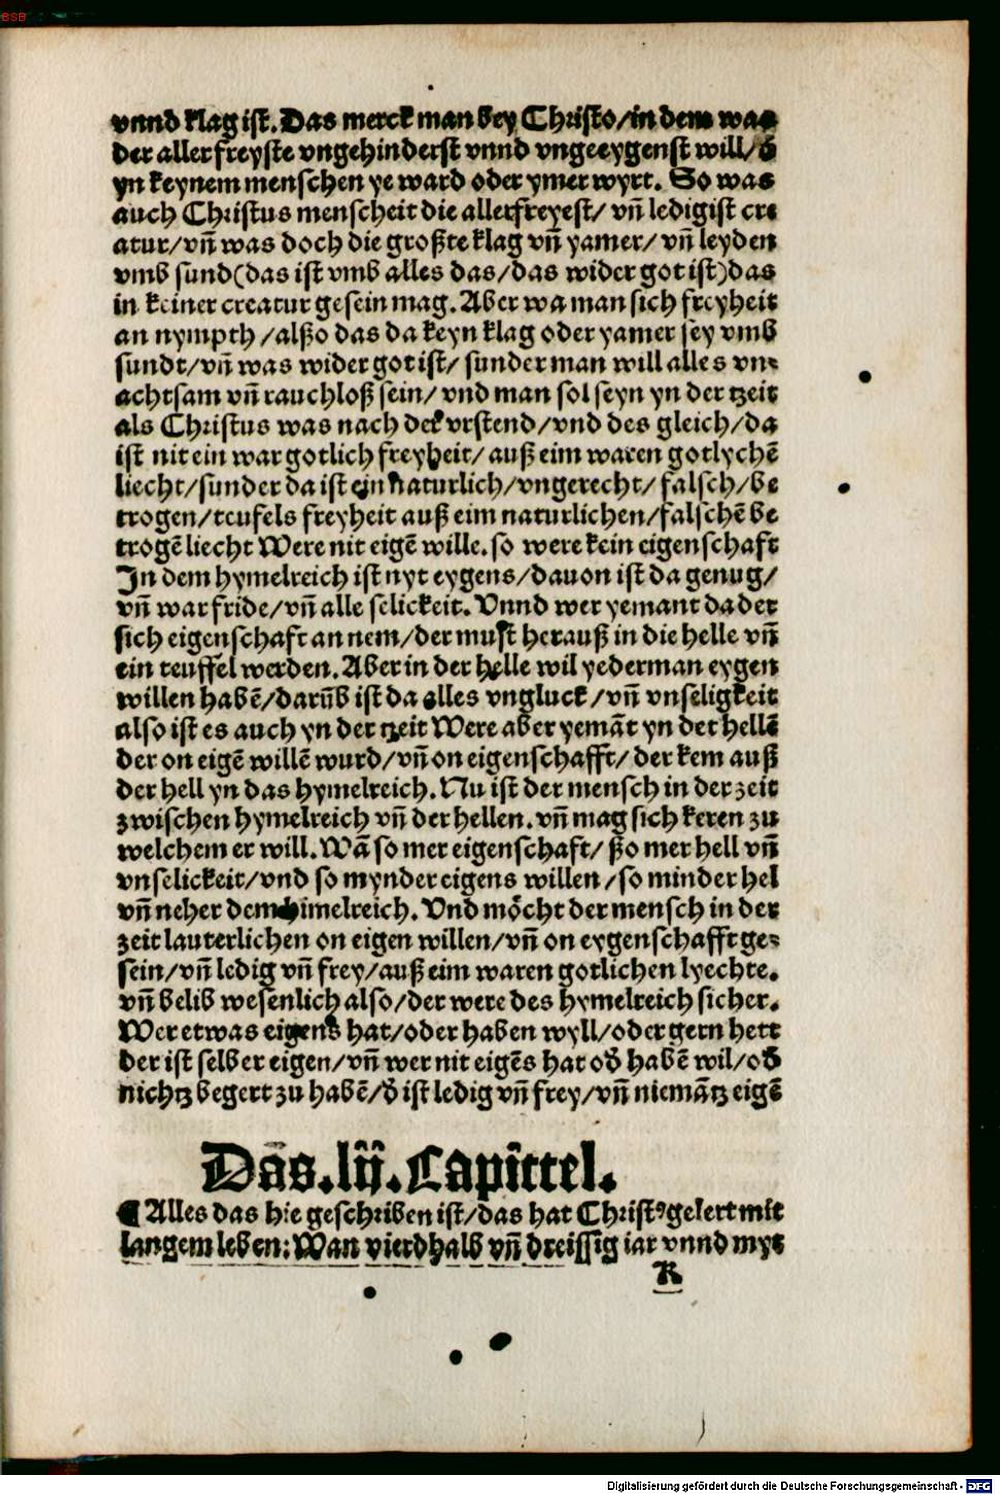 BSB
vnnd klag ist. Das merck man bey Christo/in dem was
der aller freyste vngehinderst vnnd vngeeygenst will/ď
yn keynem menschen ye ward oder ymer wyrt. So was
auch Christus menscheit die allerfreyest/ vn̄ ledigist cre
atur/vn̄ was doch die großte klag vn̄ yamer/ vn̄ leyden
vmb sund(das ist vmb alles das/das wider got ist)das
in keiner creatur gesein mag. Aber wa man sich freyheit
an nympth /alßo das da keyn klag oder yamer sey vmb
sundt/vn̄ was wider got ist/ sunder man will alles vn-
achtsam vn̄ rauchloß sein/ vnd man sol seyn yn der tzeit
als Christus was nach der vrstend/vnd des gleich/da
ist nit ein war gotlich freyheit/ auß eim waren gotlychē
liecht/sunder da ist ejn naturlich/vngerecht/ falsch/be
trogen/teufels freyheit auß eim naturlichen/falschē be
trogē liecht Were nit eigē wille. so were kein eigenschaft
In dem hymelreich ist nyt eygens/dauon ist da genug/
vn̄ war fride/vn̄ alle selickeit. Vnnd wer yemant da der
sich eigenschaft an nem/der must herauß in die helle vn̄
ein teuffel werden. Aber in der helle wil yederman eygen
willen habē/darūb ist da alles vngluck /vn̄ vnseligkeit
also ist es auch yn der tzeit Were aber yemāt yn der hellē
der on eigē willē wurd/vn̄ on eigenschafft/ der kem auß
der hell yn das hymelreich. Nu ist der mensch in der zeit
zwischen hymelreich vn̄ der hellen. vn̄ mag sich keren zu
welchem er will. Wā so mer eigenschaft/ ßo mer hell vn̄
vnselickeit/vnd so mynder eigens willen /so minder hel
vn̄ neher dem himelreich. Vnd möcht der mensch in der
zeit lauterlichen on eigen willen/vn̄ on eygenschafft ge-
sein/vn̄ ledig vn̄ frey/auß eim waren gotlichen lyechte.
vn̄ belib wesenlich also/der were des hymelreich sicher.
Wer etwas eigens hat/oder haben wyll/oder gern hett
der ist selber eigen/vn̄ wer nit eigēs hat oď habē wil/oď
nichtz begert zu habē/ď ist ledig vn̄ frey/vn̄ niemātz eigē
Das.lij.Capittel.
¶ Alles das hie geschriben ist/das hat Christꝰ gelert mit
langem leben: Wan vierdhalb vn̄ dreissig iar vnnd myt
K
Digitalisierung gefördert durch die Deutsche Forschungsgemeinschaft - DFG